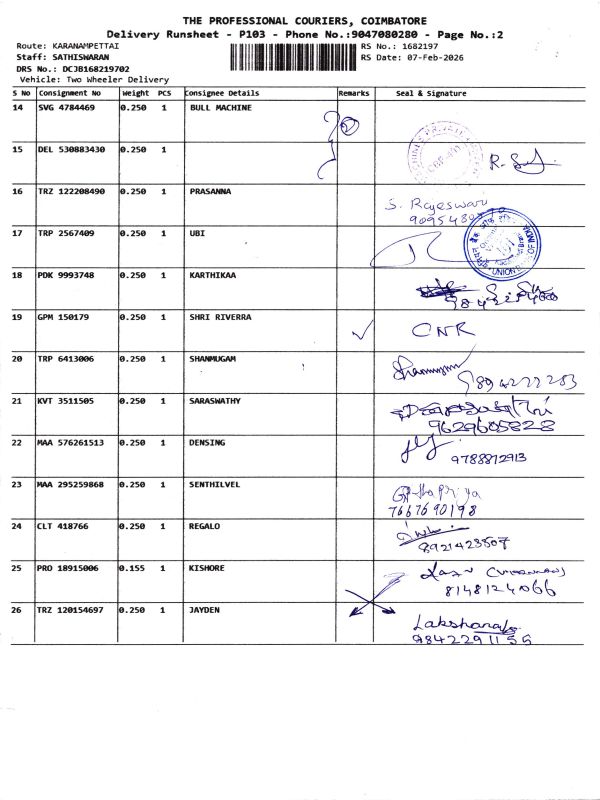 THE PROFESSIONAL COURIERS, COIMBATORE
Delivery Runsheet - P103 - Phone No.:9047080280 - Page No.:2
Route: KARANAMPETTAI
RS No.: 1682197
Staff: SATHISWARAN
RS Date: 07-Feb-2026
DRS No.: DCJB168219702
Vehicle: Two Wheeler Delivery
S No Consignment No Weight PCS Consignee Details Remarks Seal & Signature
14 SVG 4784469 0.250 1 BULL MACHINE
15 DEL 530883430 0.250 1
16 TRZ 122208490 0.250 1 PRASANNA S. Rajeswari
17 TRP 2567409 0.250 1 UBI
18 PDK 9993748 0.250 1 KARTHIKAA
19 GPM 150179 0.250 1 SHRI RIVERRA CNR
20 TRP 6413006 0.250 1 SHANMUGAM
21 KVT 3511505 0.250 1 SARASWATHY
9629605828
22 MAA 576261513 0.250 1 DENSING
9788872913
23 MAA 295259868 0.250 1 SENTHILVEL
7667690198
24 CLT 418766 0.250 1 REGALO
8921423507
25 PRO 18915006 0.155 1 KISHORE
8148124066
26 TRZ 120154697 0.250 1 JAYDEN
9842291156